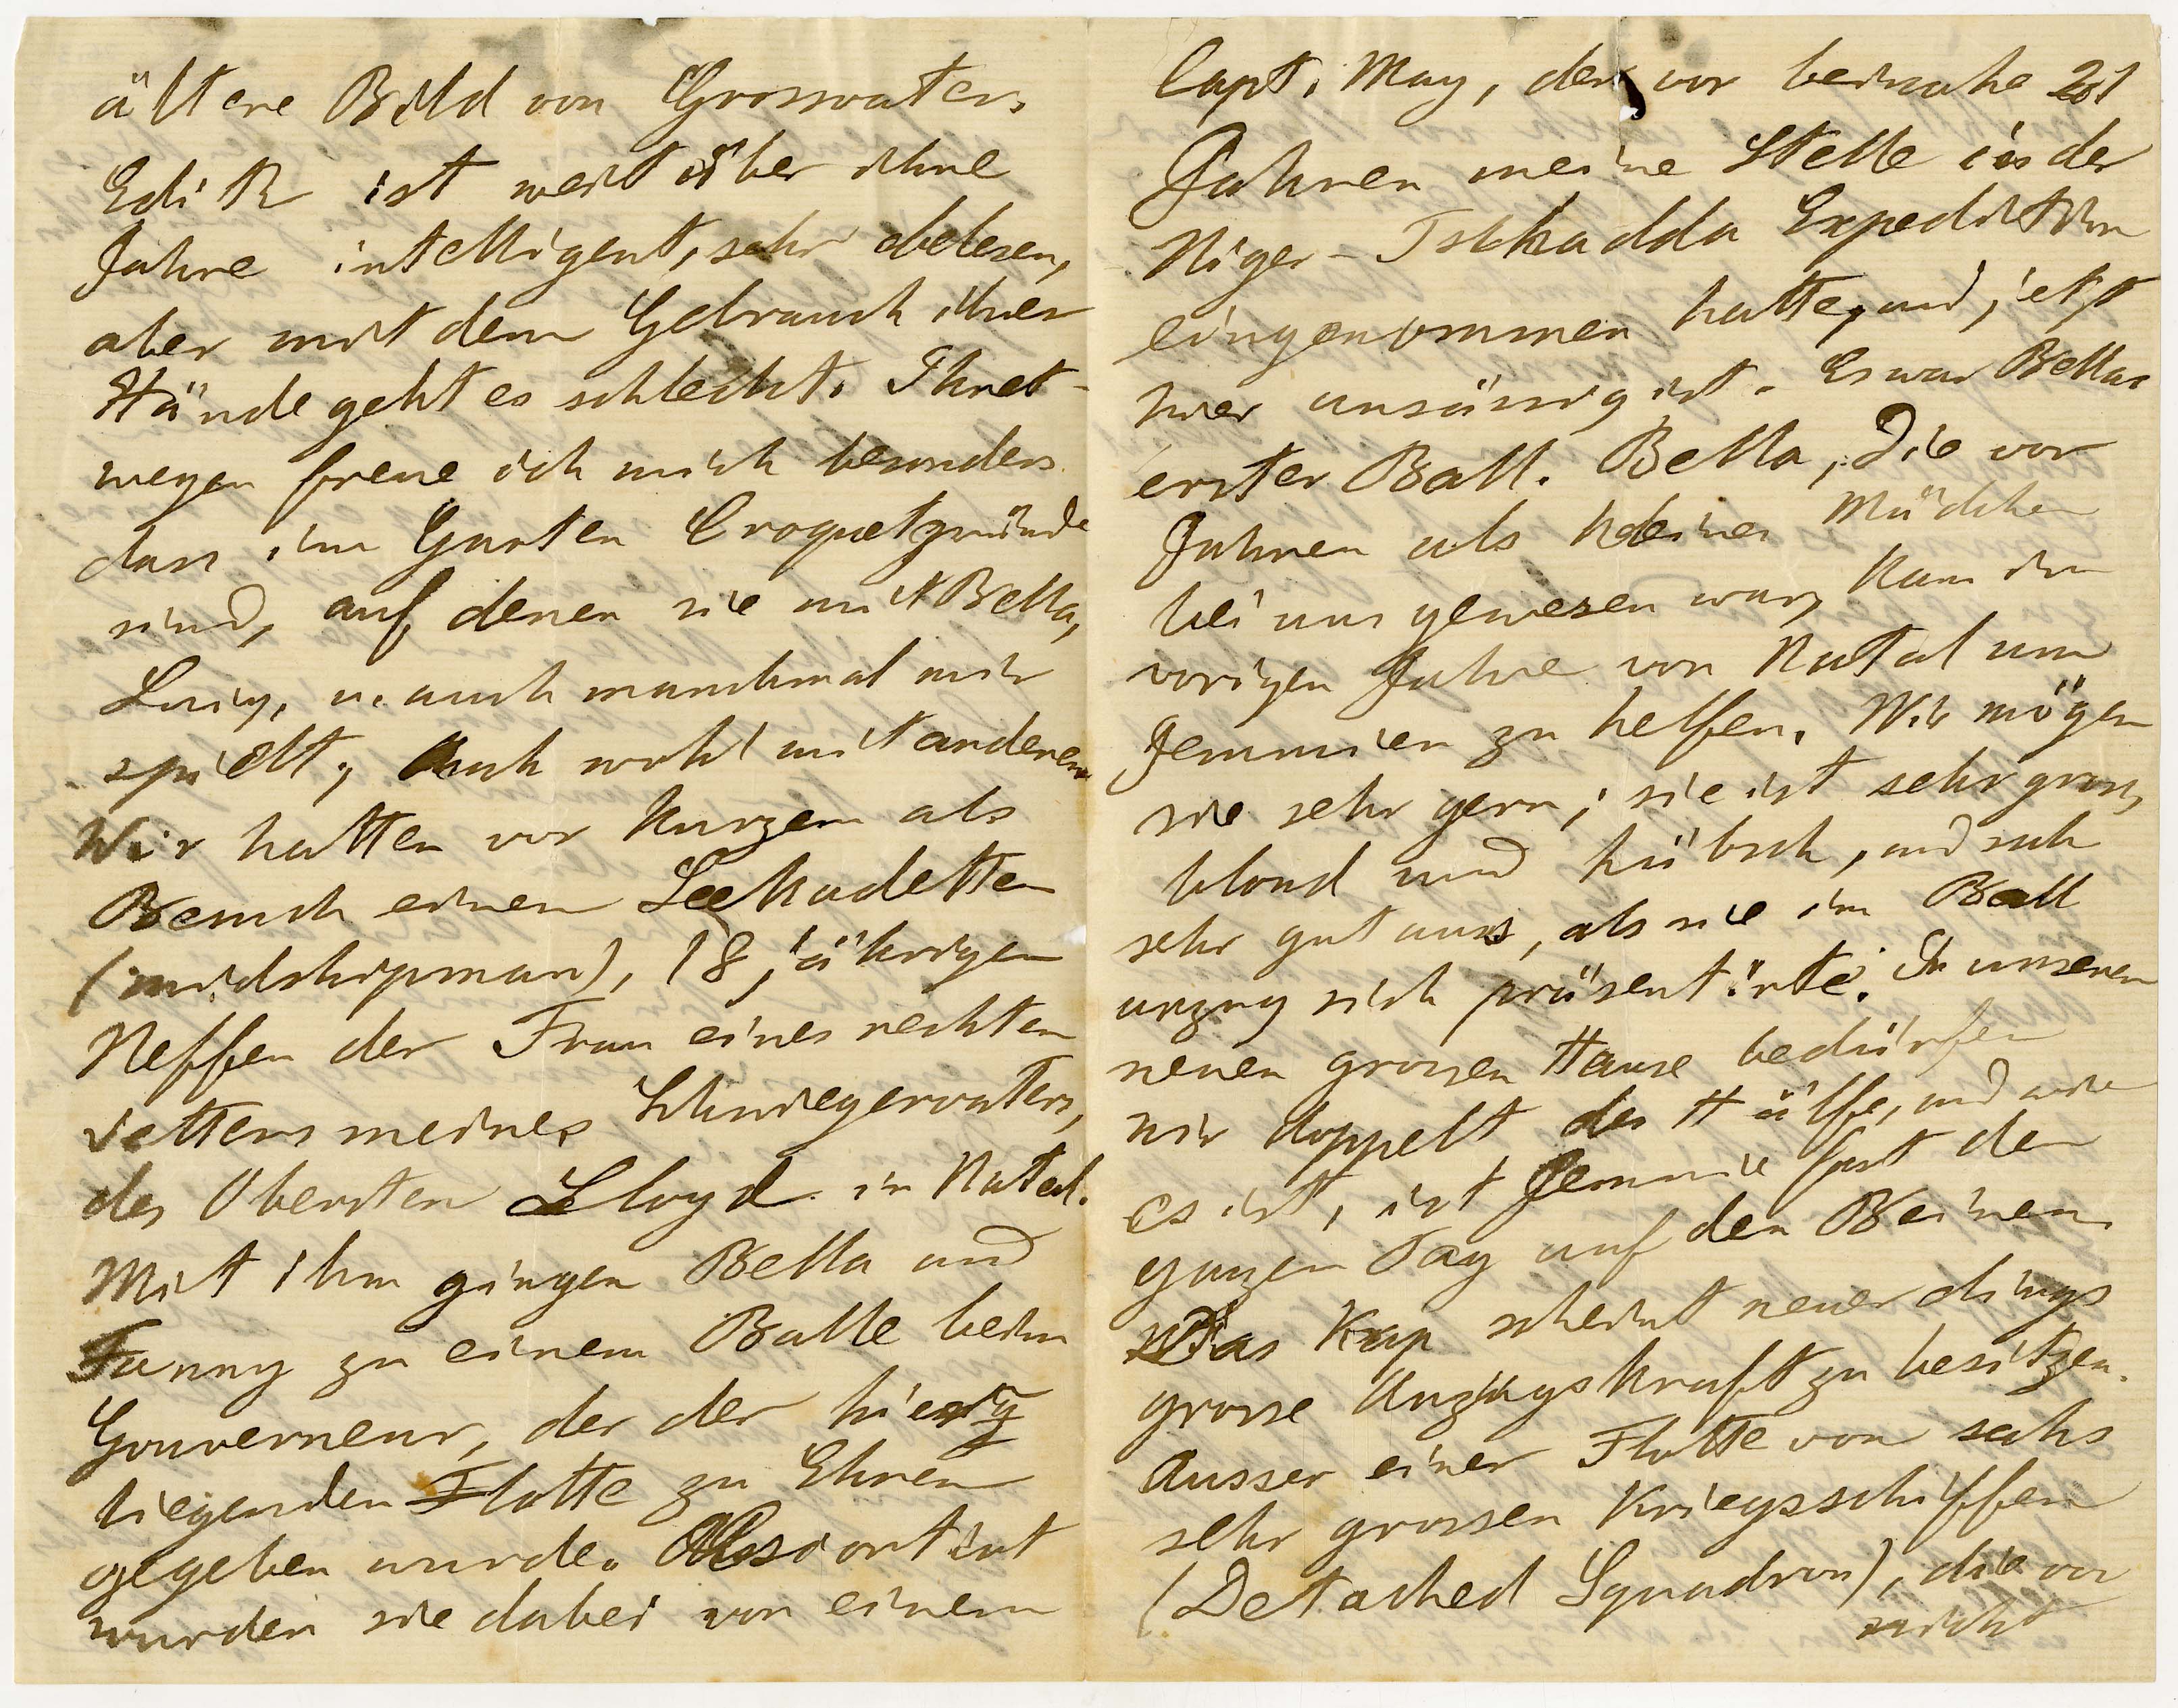 ältere Bild von Grossvater.
Edith ist weit über ihre
Jahre intelligent, sehr belesen,
aber mit dem Gebrauch ihrer
Hände geht es schlecht. Ihret-
wegen freue ich mich besonders
dass im Garten Croquetgründe
sind, auf denen sie mit Bella,
Lucy, u. auch manchmal mir
spielt, Auch wohl mit anderen.
Wir hatten vor Kurzem als
Besuch einen Seekadetten
(midshipman), 18 jährigen
Neffen der Frau eines rechten
Vetters meines Schwiegervaters,
des Obersten Lloyd in Natal.
Mit ihm gingen Bella und
Fanny zu einem Balle beim
Gouverneur, der der hier
liegenden Flotte zu Ehren
gegeben wurde. Chaperonirt
wurden sie dabei von einem
Capt. May, der vor beinahe 21
Jahren meine Stelle in der
Niger-Tschadda Expedition
eingenommen hatte, und jetzt
hier ansässig ist. Es war Bellas
erster Ball. Bella, die vor
Jahren als kleines Mädchen
bei uns gewesen war, kam im
vorigen Jahre von Natal um
Jemmien zu helfen. Wir mögen
sie sehr gern; sie ist sehr gross,
blond und hübsch, und sah
sehr gut aus, als sie im Ball
anzug sich präsentirte. In unserem
neuen grossen Hause bedürfen
wir doppelt der Hülfe, und wie
es ist, ist Jemmie fast den
ganzen Tag auf den Beinen.
Das Kap scheint neuerdings
grosse Anzugskraft zu besitzen.
Ausser einer Flotte von sechs
sehr grossen Kriegsschiffen
(Detached Squadron), die vor
nicht